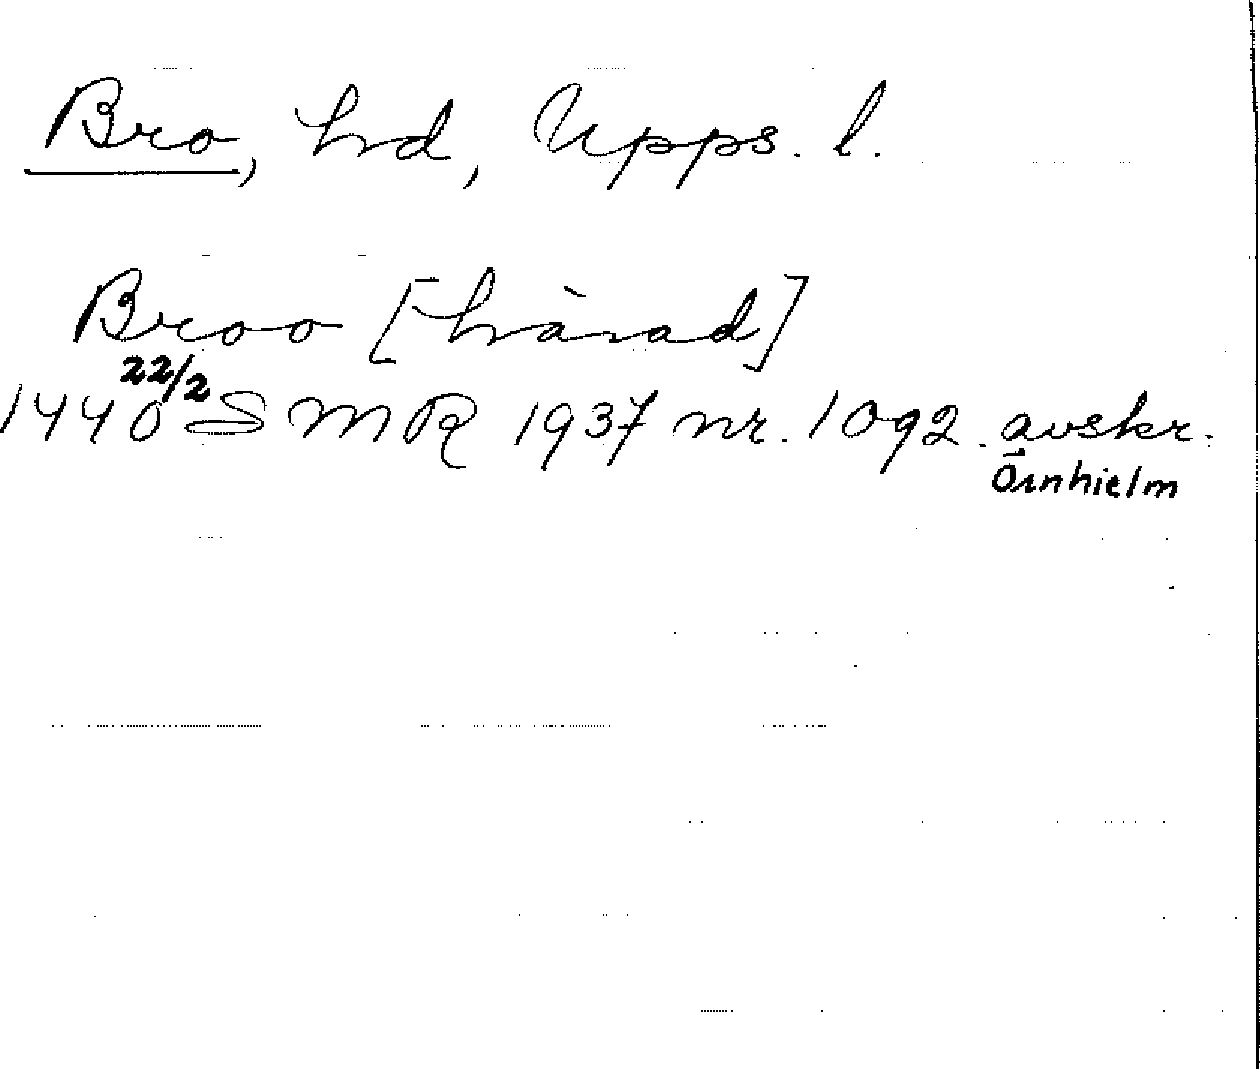 Bro, hd, Upps. l.
Broo [härad]
1440 22/2 SMR 1937 nr. 1092. avskr.
Örnhielm